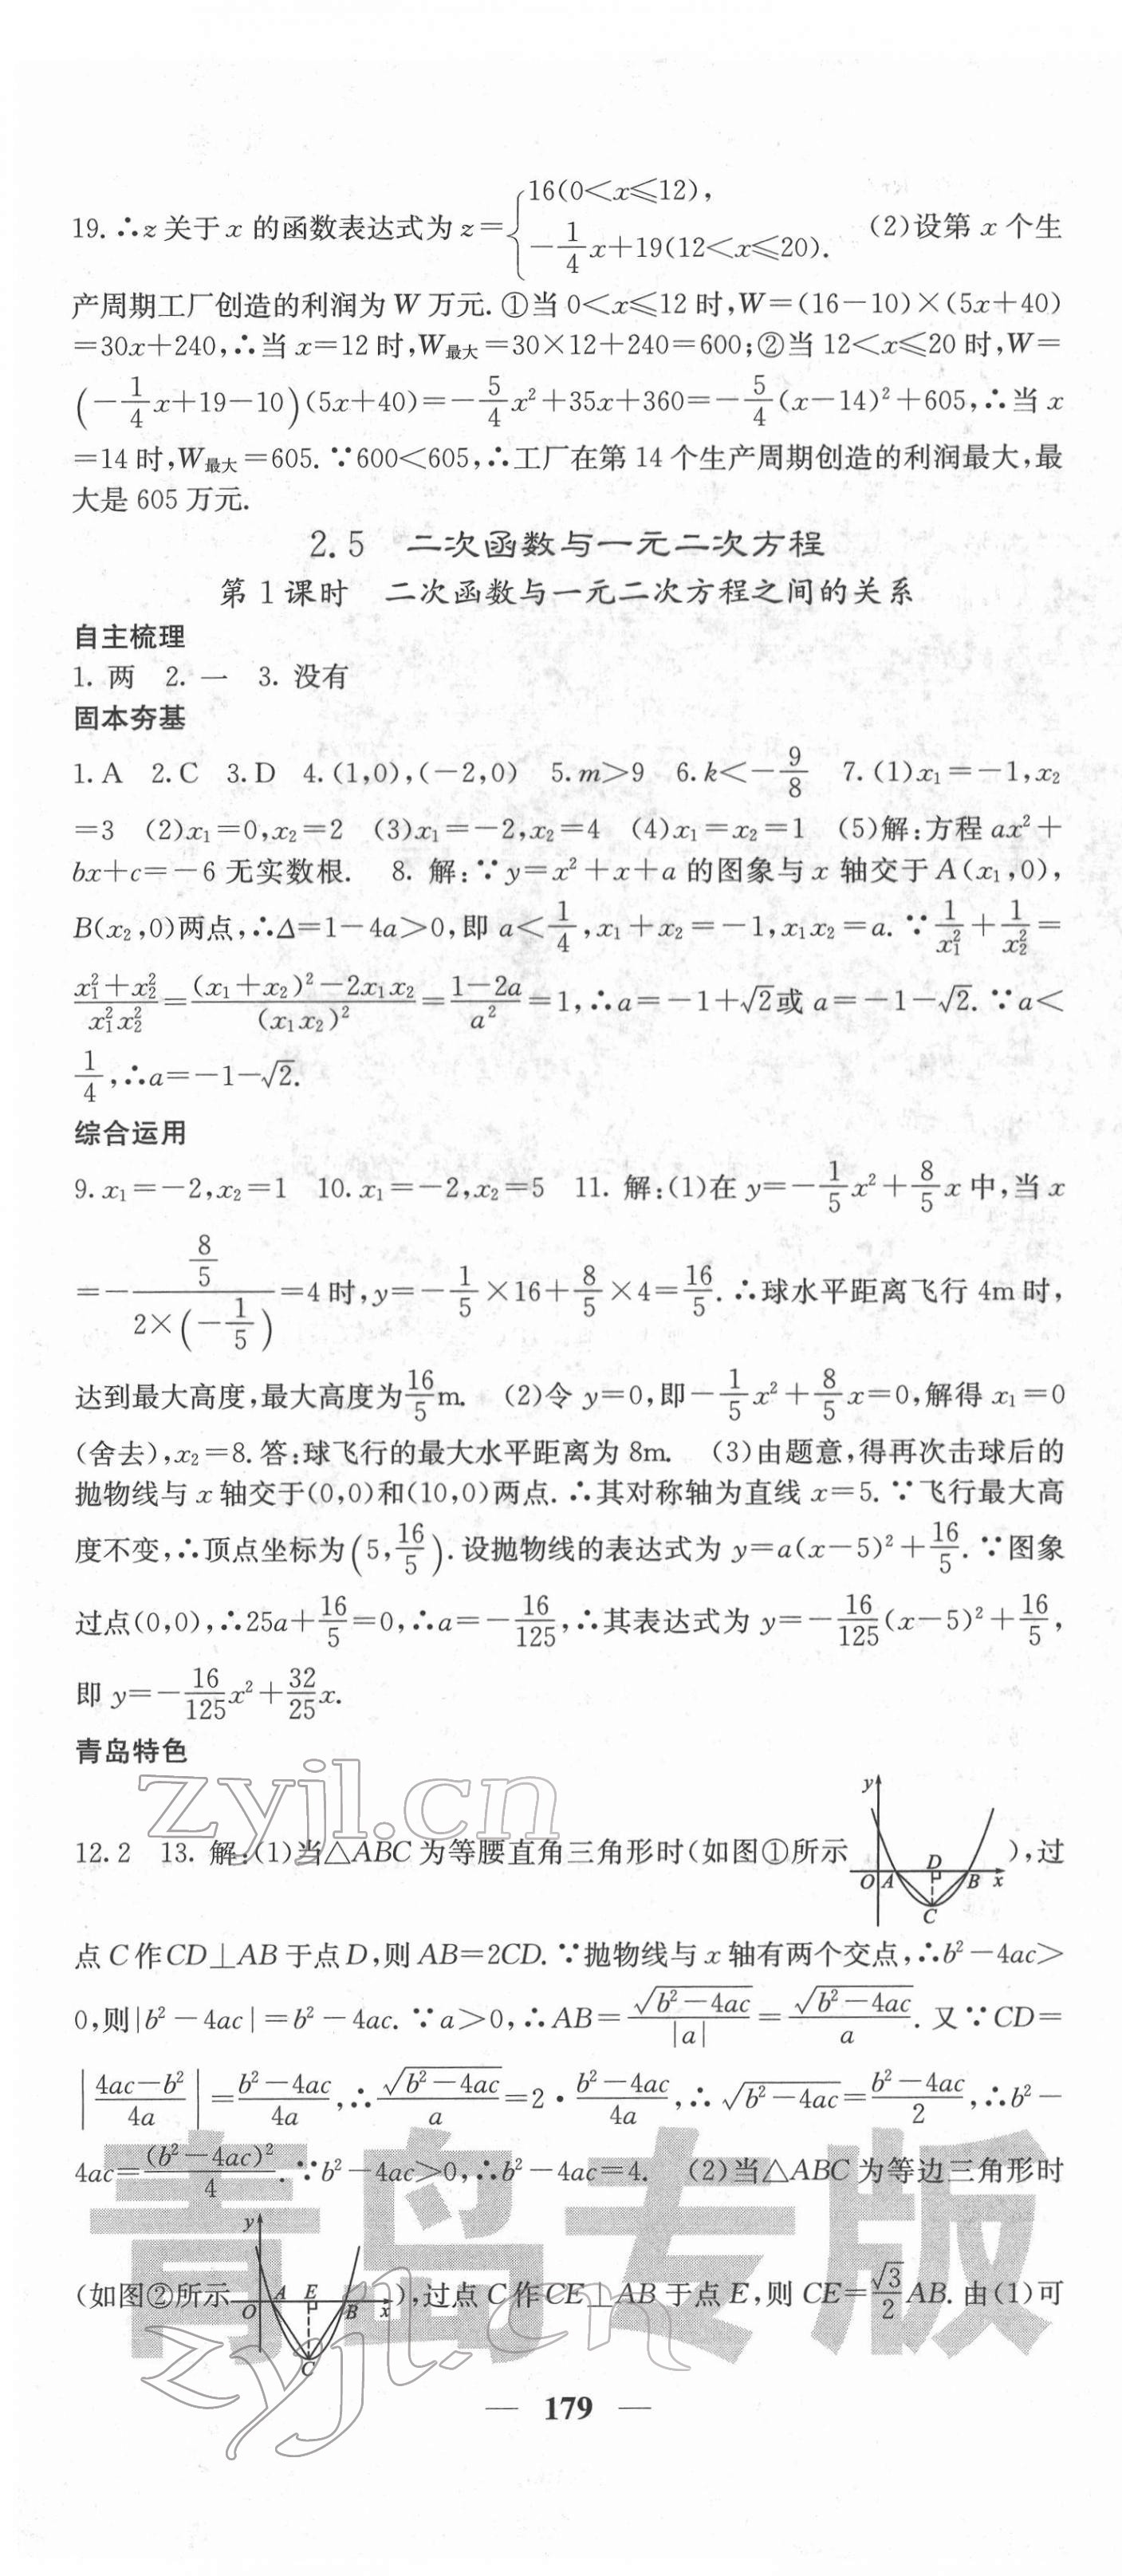 19. ∴z关于x的函数表达式为z={16(0<x≤12), -1/4x+19(12<x≤20). (2)设第x个生
产周期工厂创造的利润为W万元.①当0<x≤12时,W=(16-10)×(5x+40)
=30x+240,∴当x=12时,W最大=30×12+240=600;②当12<x≤20时,W=
(-1/4x+19-10)(5x+40)=-5/4x²+35x+360=-5/4(x-14)²+605,∴当x
=14时,W最大=605.∵600<605,∴工厂在第14个生产周期创造的利润最大,最
大是605万元.
2.5 二次函数与一元二次方程
第1课时 二次函数与一元二次方程之间的关系
自主梳理
1. 两 2. 一 3. 没有
固本夯基
1.A 2.C 3.D 4.(1,0),(-2,0) 5.m>9 6.k<-9/8 7.(1)x₁=-1,x₂
=3 (2)x₁=0,x₂=2 (3)x₁=-2,x₂=4 (4)x₁=x₂=1 (5)解:方程ax²+
bx+c=-6无实数根. 8. 解:∵y=x²+x+a的图象与x轴交于A(x₁,0),
B(x₂,0)两点,∴Δ=1-4a>0,即a<1/4,x₁+x₂=-1,x₁x₂=a.∵1/x₁²+1/x₂²=
(x₁²+x₂²)/(x₁²x₂²)=((x₁+x₂)²-2x₁x₂)/(x₁x₂)²=(1-2a)/a²=1,∴a=-1+√2或a=-1-√2.∵a<
1/4,∴a=-1-√2.
综合运用
9.x₁=-2,x₂=1 10.x₁=-2,x₂=5 11. 解:(1)在y=-1/5x²+8/5x中,当x
=-(8/5)/(2×(-1/5))=4时,y=-1/5×16+8/5×4=16/5.∴球水平距离飞行4m时,
达到最大高度,最大高度为16/5m. (2)令y=0,即-1/5x²+8/5x=0,解得x₁=0
(舍去),x₂=8.答:球飞行的最大水平距离为8m. (3)由题意,得再次击球后的
抛物线与x轴交于(0,0)和(10,0)两点.∴其对称轴为直线x=5.∵飞行最大高
度不变,∴顶点坐标为(5,16/5).设抛物线的表达式为y=a(x-5)²+16/5.∵图象
过点(0,0),∴25a+16/5=0,∴a=-16/125,∴其表达式为y=-16/125(x-5)²+16/5,
即y=-16/125x²+32/25x.
青岛特色
zyjl.cn
y
12.2 13. 解:(1)当△ABC为等腰直角三角形时(如图①所示 O A D B x C ),过
点C作CD⊥AB于点D,则AB=2CD.∵抛物线与x轴有两个交点,∴b²-4ac>
0,则|b²-4ac|=b²-4ac.∵a>0,∴AB=√(b²-4ac)/|a|=√(b²-4ac)/a.又∵CD=
|(4ac-b²)/4a|=(b²-4ac)/4a,∴√(b²-4ac)/a=2·(b²-4ac)/4a,∴√(b²-4ac)=(b²-4ac)/2,∴b²-
4ac=(b²-4ac)²/4.∵b²-4ac>0,∴b²-4ac=4. (2)当△ABC为等边三角形时
(如图②所示 y O A E B x C ),过点C作CE⊥AB于点E,则CE=√3/2AB.由(1)可
青岛专版
zyjl.cn
— 179 —